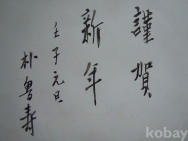 謹賀
新年
壬子元旦
朴魯壽
kobay